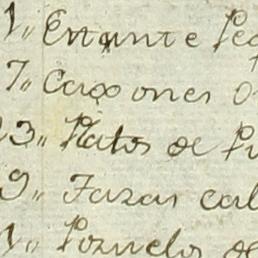 1,, Estante Pe
7,, Caxones
3,, Platos de P
9,, Tazas cal
1,, Pozuelos de